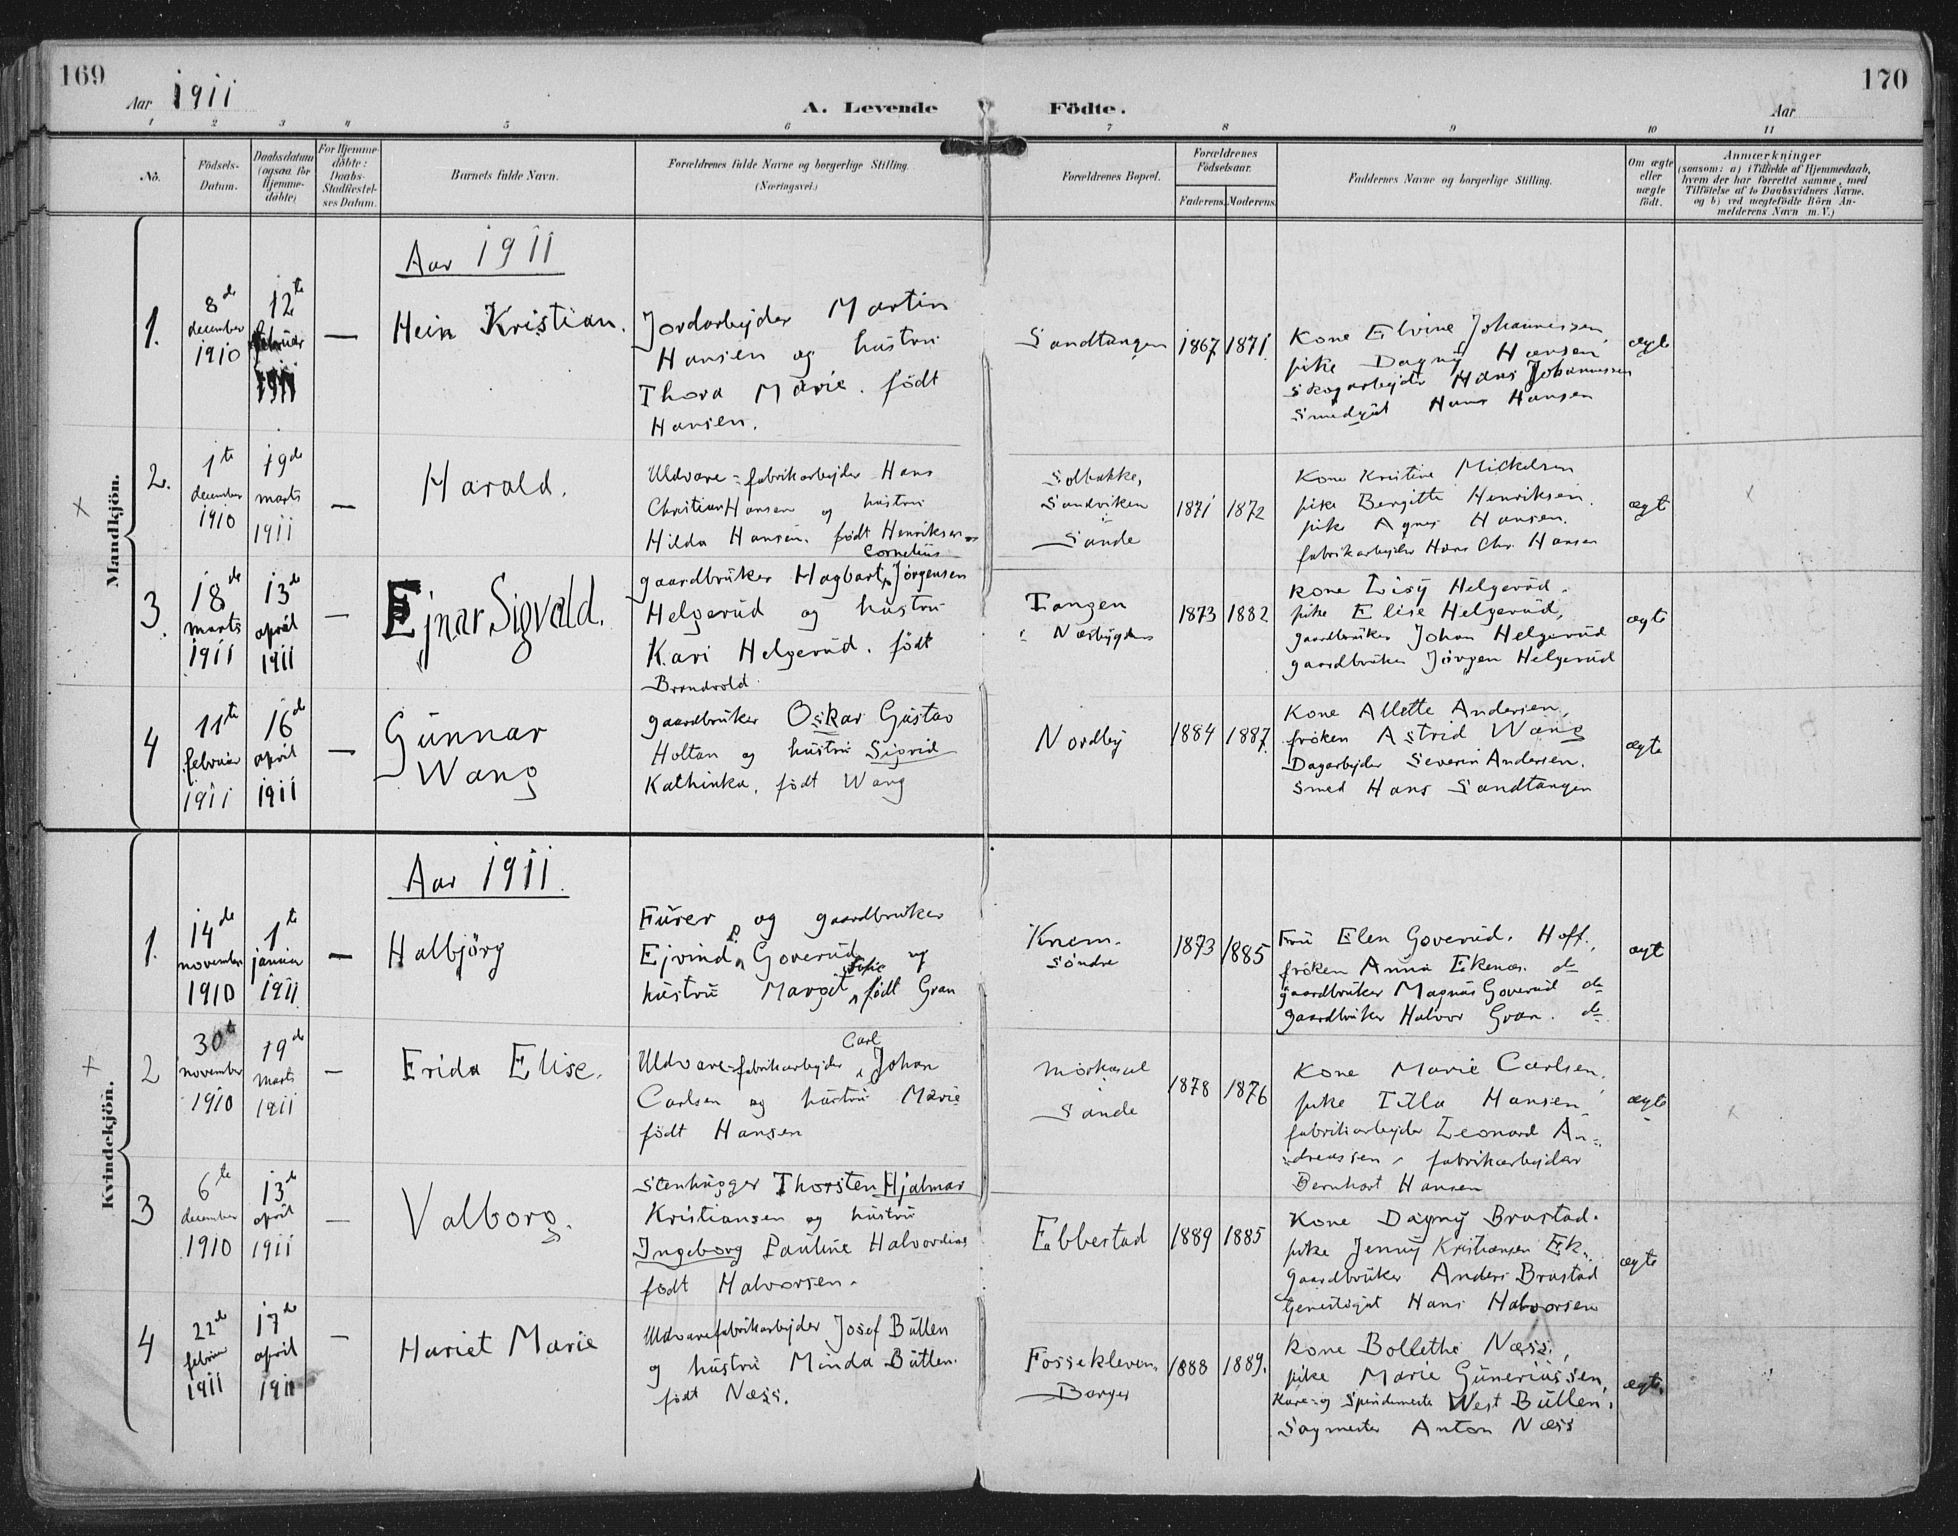 169
Aar 1911
A. Levende Födte.
Aar
170
1 2 3 4 5 6 7 8 9 10 11
No.
Födsels-Datum.
Daabsdatum (ogsaa for Hjemme-døbte)
For Hjemme-døbte: Daabs-Stadfæstel-ses Datum.
Barnets fulde Navn.
Forældrenes fulde Navne og borgerlige Stilling.
(Næringsvei.)
Forældrenes Bopæl.
Forældrenes Födselsaar.
Faderens. Moderens.
Faddernes Navne og borgerlige Stilling.
Om ægte eller uægte födt.
Anmærkninger
(saasom: a) i Tilfælde af Hjemmedaab,
hvem der har forrettet samme, med
Tilføielse af to Daabsvidners Navne,
og b) ved uægtefödte Börn An-
melderens Navn m. V.)
Mandkjön.
Aar 1911
1.
8de december 1910
12te februar 1911
—
Hein Kristian.
Jordarbejder Martin
Hansen og hustru
Thora Marie. født
Hansen.
Sandtangen
1867 1871
Kone Elvine Johannessen
pike Dagny Hansen
Skogarbejder Hans Johannessen
Smedgut Hans Hansen
ægte
2.
1te december 1910
19de marts 1911
—
Harald.
Uldvare-fabrikarbejder Hans
Christian Hansen og hustru
Hilda Hansen. født Henriksen
Solbakke,
Sandviken
i
Sande
1871 1872
Kone Kristine Mickelsen
pike Bergitte Henriksen.
pike Agnes Hansen.
fabrikarbejder Hans Chr. Hansen
ægte
x
3.
18de marts 1911
13de april 1911
—
Ejnar Sigvald.
Cornelius
gaardbruker Hagbart Jørgensen
Helgerud og hustru
Kari Helgerud. født
Brandvold
Tangen
i Næsbygden
1873 1882
Kone Lisy Helgerud.
pike Elise Helgerud,
gaardbruker Johan Helgerud
gaardbruker Jørgen Helgerud
ægte
4
11te februar 1911
16de april 1911
—
Gunnar
Wang
gaardbruker Oskar Gustav
Holtan og hustru Sigrid
Kathinka, født Wang
Nordby
1884 1887
Kone Allette Andersen,
frøken Astrid Wang
Dagarbejder Severin Andersen.
Smed Hans Sandtangen
ægte
Kvindekjön.
Aar 1911.
1.
14de november 1910
1te januar 1911
—
Halbjörg
Furer og gaardbruker
Ejvind P. Goverud og
hustru Margit Sofie født Gran
Knem.
Söndre
1873 1885
Fru Elen Goverud. Hoff.
frøken Anna Ekenæs. do
gaardbruker Magnus Goverud do
gaardbruker Halvor Gran. do
ægt
2
30te november 1910
19de marts 1911
—
Frida Elise.
Carl
Uldvare-fabrikarbejder Johan
Carlsen og hustru Marie
født Hansen
Mørkasel
i
Sande
1878 1876
Kone Marie Carlsen.
pike Tilla Hansen
fabrikarbejder Leonard An-
dreassen, fabrikarbejder
Bernhart Hansen
ægte
x
3
6te december 1910
13de april 1911
—
Valborg.
Stenhugger Thorsten Hjalmar
Kristiansen og hustru
Ingeborg Pauline Halvordine
født Halvorsen.
Ebbestad
1889 1885
Kone Dagny Brastad.
pike Jenny Kristiansen Ek.
Gaardbruker Anders Brastad
tjenestegut Hans Halvorsen
ægte
4
22de februar 1911
17de april 1911
—
Hariet Marie
Uldvarefabrikarbejder Josef Butten
og hustru Minda Butten.
født Næss.
Fossekleven.
Berger
1888 1889.
Kone Bollethe Næss,
pike Marie Guneriussen,
Kare-og Spindemester West Butten,
Sagmester Anton Næss
ægte.